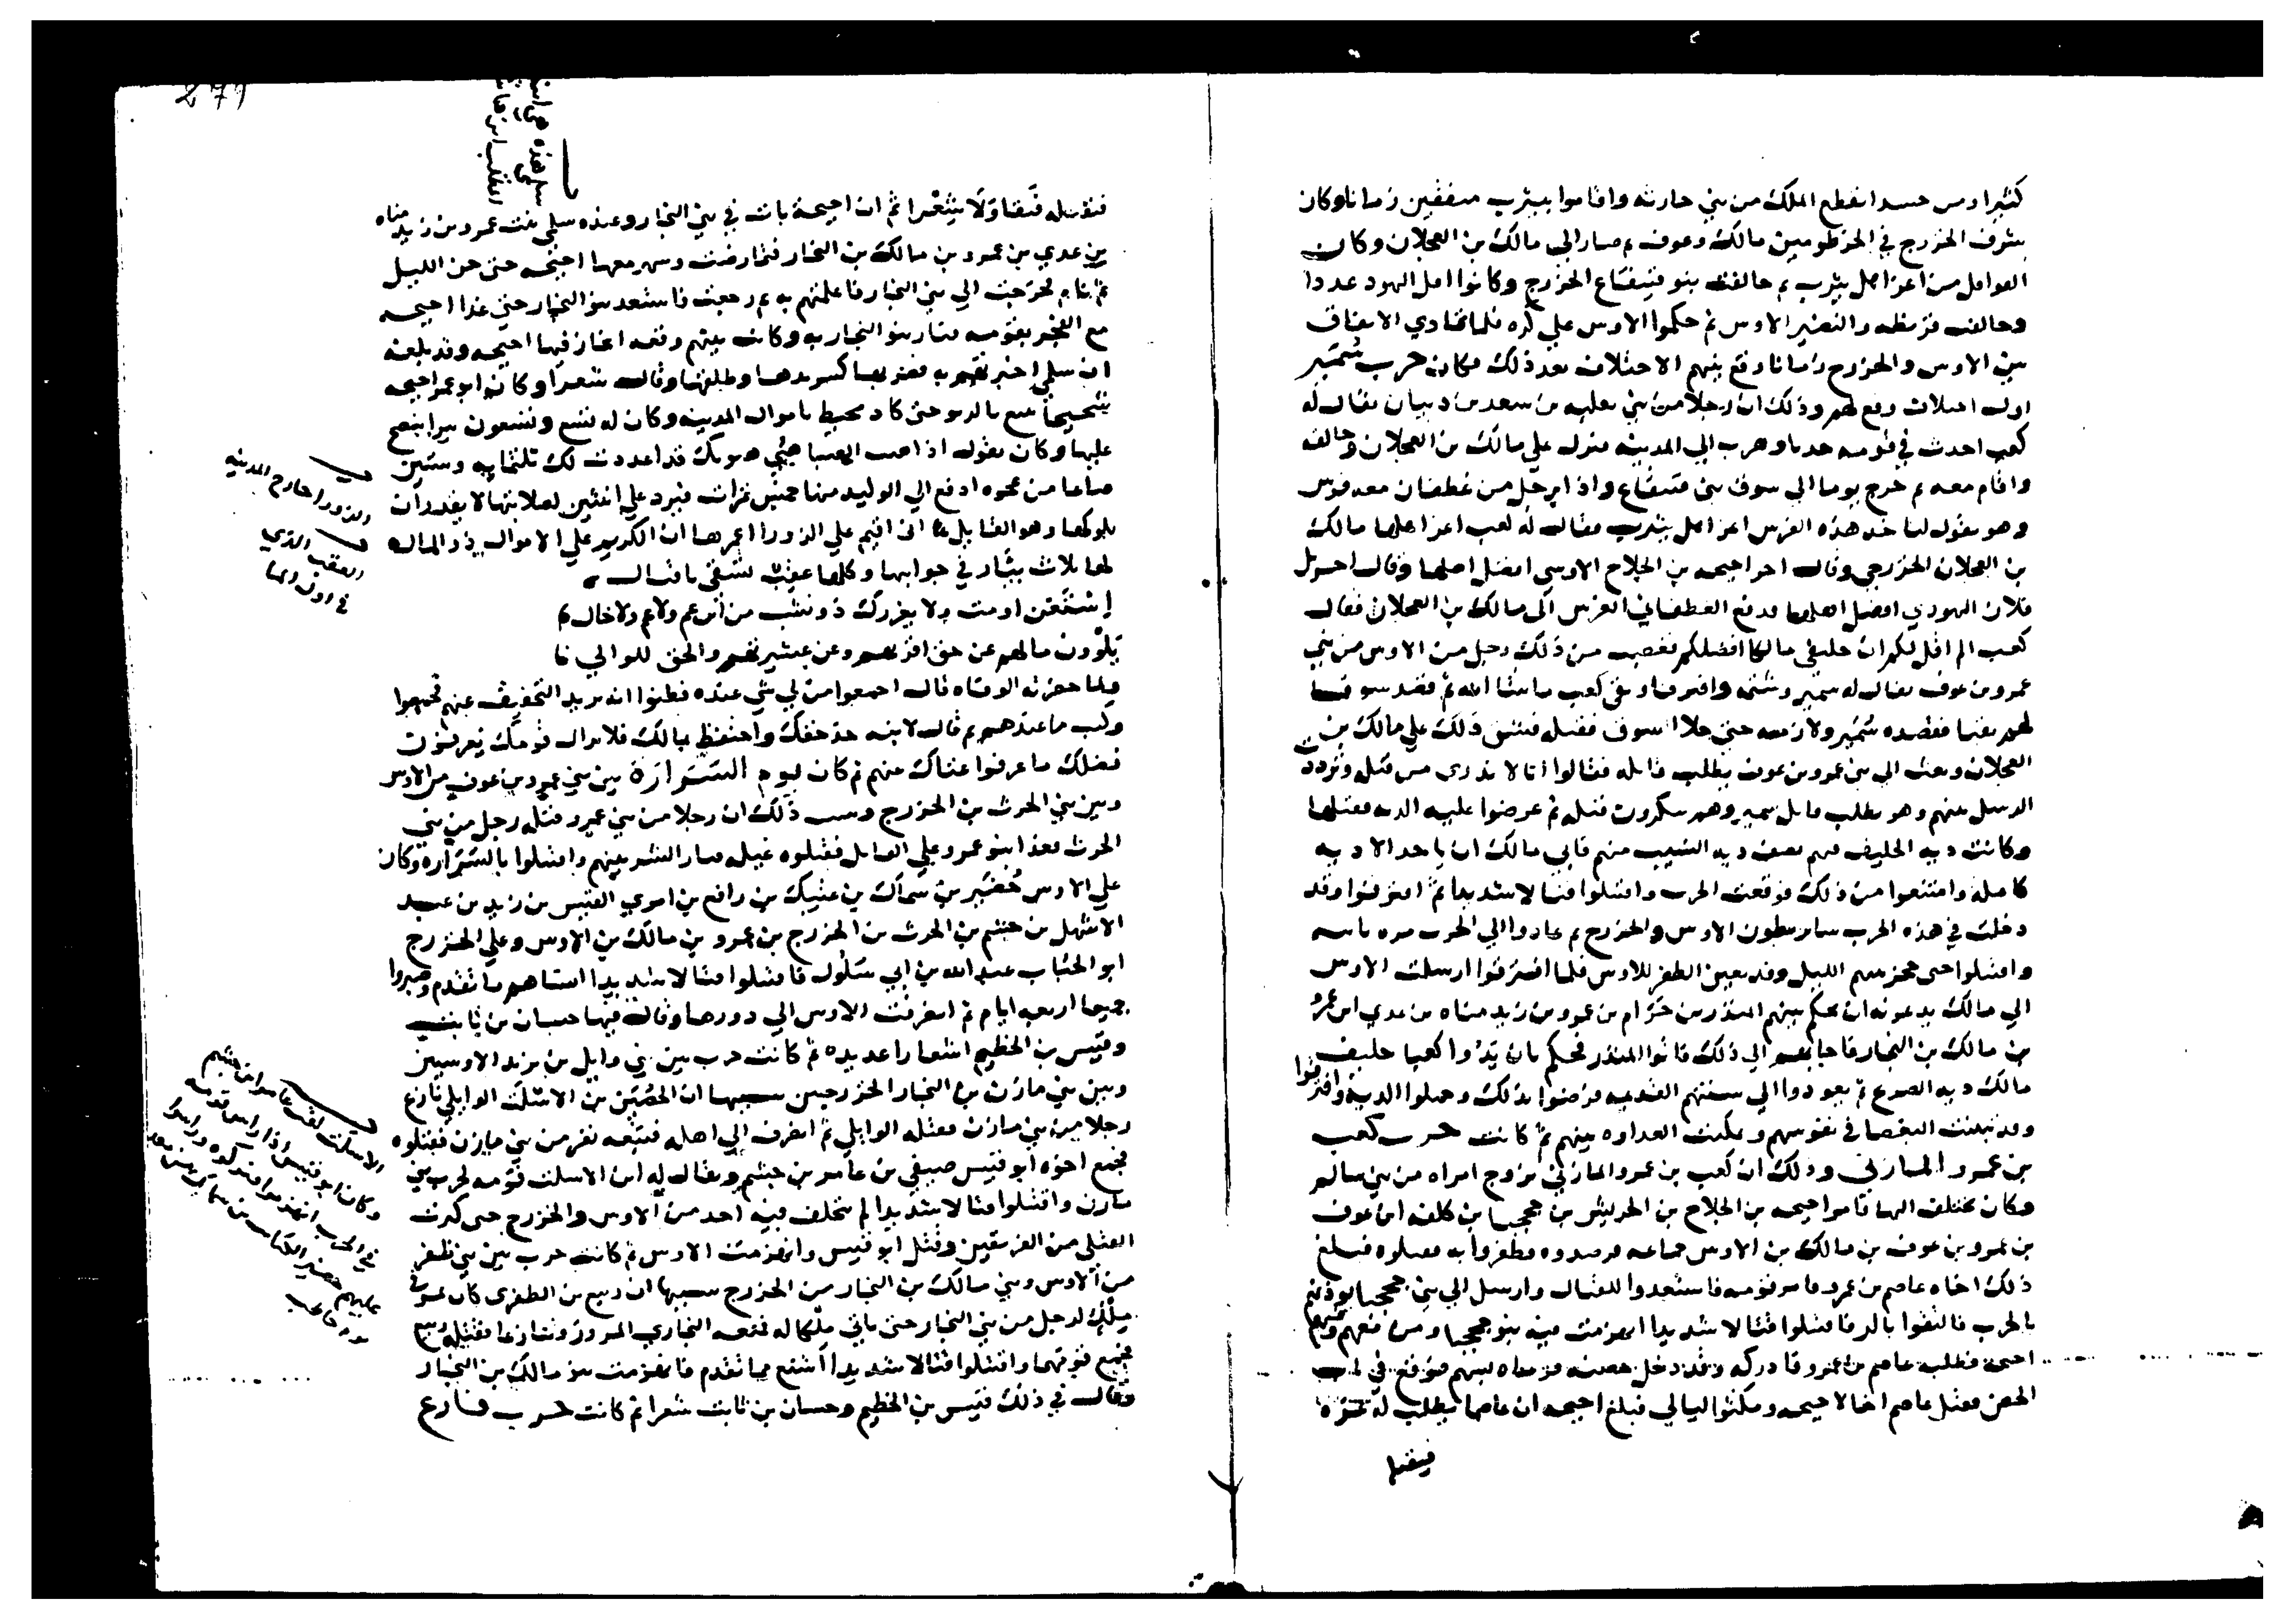 كثيرا ومن حسد انقطع الملك من بني حارثه واقاموا بيثرب متفقين زمانا وكان
شرف الخزرج في الخرطومين مالك وعوف ثم صار الي مالك بن العجلان وكان
القواقل من اعز اهل يثرب ثم حالفت بنو قينقاع الخزرج وكانوا اقل اليهود عددا
وحالفت قريظه والنضير الاوس ثم حكموا الاوس علي فلما تمادي الاتفاق
بين الاوس والخزرج زمانا وقع بينهم الاختلاف بعد ذلك فكان حرب سُمَير
اول اختلاف وقع لهم وذلك ان رجلا من بني ثعلبه من سعد بن ذبيان يقال له
كعب احدث في قومه حدثا وهرب الي المدينه فنزل علي مالك بن العجلان وحالفه
واقام معه ثم خرج يوما الي سوق بني قينقاع واذا برجل من غطفان معه فرس
وهو يقول لياخذ هذه الفرس اعز اهل يثرب فقال له كعب اعز اهلها مالك
بن العجلان الخزرجي وقال اخر احيحه بن الجلاح الاوسي افضل اهلها وقال اخر بل
فلان اليهودي افضل اهلها فدفع الغطفاني الفرس الي مالك بن العجلان فقال
كعب الم اقل لكم ان حليفي مالكا افضلكم فغضب من ذلك رجل من الاوس من بني
عمرو بن عوف يقال له سمير وشتمه وافترقا وبقي كعب ماشا الله ثم قصد سوقا
لهم بقبا فقصده سُمَير ولازمه حتي خلا السوق فقتله فشق ذلك علي مالك بن
العجلان وبعث الي بني عمرو بن عوف يطلب قاتله فقالوا انا لا ندري من قتله وترددت
الرسل بينهم وهو يطلب قاتل سمير وهم ينكرون قتله ثم عرضوا عليه الديه فقبلها
وكانت ديه الحليف فيهم نصف ديه النسيب منهم فابي مالك ان ياخذ الا ديه
كامله وامتنعوا من ذلك فوقعت الحرب واقتتلوا قتالا شديدا ثم افترقوا وقد
دخلت في هذه الحرب ساير بطون الاوس والخزرج ثم عادوا الي الحرب مره ثانيه
واقتتلوا حتي حجز بينهم الليل وقد تعين الظفر للاوس فلما افترقوا ارسلت الاوس
الي مالك يدعونه ان يحكم بينهم المنذر بن حَرَام بن عمرو بن زيد مناه بن عدي ابن عمرو
بن مالك بن النجار فاجابهم الي ذلك فاتوا المنذر فحكم بان يَدُوا كعبا حليف
مالك ديه الصريح ثم يعودوا الي سنتهم القديمه فرضوا بذلك وحملوا الديه وافترقوا
وقد ثبتت البغضا في نفوسهم وتمكنت العداوه بينهم ثم كانت حرب كعب
بن عمرو المازني وذلك ان كعب بن عمرو المازني تزوج امراه من بني سالم
وكان يختلف اليها فامر احيحه بن الجلاح بن الحريش بن جحجبا بن كلفه ابن عوف
بن عمرو بن عوف بن مالك بن الاوس جماعه فرصدوه وظفروا به فقتلوه فبلغ
ذلك اخاه عاصم بن عمرو فامر قومه فاستعدوا للقتال وارسل الي بني جحجبا يوذنهم
بالحرب فالتقوا بالرحابه فاقتتلوا قتالا شديدا انهزمت فيه بنو جحجبا ومن معهم وفيهم
احيحه فطلبه عاصم بن عمرو فادركه وقد دخل حصنه فرماه بسهم فوقع في باب
الحصن فقتل عاصم اخا لاحيحه ومكثوا ليالي فبلغ احيحه ان عاصما يطلب له غِرّة
فيقتله
271
فيقتله ثم ان احيحة بات في بني النجار وعنده سلمي بنت عمرو بن زيد مناه
بن عدي بن عمرو بن مالك بن النجار فتمارضت وسهر معها احيحه حتي جن الليل
ثم نام فخرجت الي بني النجار فاعلمتهم به ثم رجعت فاستعد بنو النجار حتي غدا احيحه
مع الفجر بقومه فثار بنو النجار به وكانت بينهم وقعه انحاز فيها احيحه وقد بلغه
ان سلمي اخبرتهم به فضربها كسر يدها وطلقها وقال شعرا وكان ابو عمر احيحه
شحيحا يبيع بالربو حتي كاد يحيط باموال المدينه وكان له تسع وتسعون بيرا ينضح
عليها وكان يقول اذا هبت الصبا هُبِّي هبوبك قد اعددت لك ثلثمايه وستين
صاعا من عجوه ادفع الي الوليد منها خمس تمرات فيرد علي اثنتين لصلابتها لا يقدر ان
يلوكها وهو القايل اني اقيم علي الزورا اعمرها ان الكريم علي الاموال ذو المال
لها ثلاث بِئار في جوانبها وكلها عقب تسقي باقبال
إستَغن او مت ولا يغررك ذو نشب من ابن عم ولا عم ولا خال
يلوون مالهم عن حق اقربهم وعن عشيرتهم والحق للوالي
ولما حضرته الوفاه قال اجمعوا من لي شي عنده فظنوا انه يريد التخفيف عنهم فجمعوا
وكتب ما عندهم ثم قال لابنه خذ حقك واحتفظ بمالك فلا يزال قومك يعرفون
فضلك ما عرفوا غناك عنهم ثم كان يوم السَرَارَة بين بني عمرو بن عوف من الاوس
وبين بني الحرث بن الخزرج وسبب ذلك ان رجلا من بني عمرو قتله رجل من بني
الحرث فعدا بنو عمرو علي القاتل فقتلوه غيله فثار الشر بينهم واقتتلوا بالسَرَارَه وكان
علي الاوس حُضَير بن سِمَاك بن عتيك بن رافع بن امري القيس بن زيد بن عبد
الاشهل بن جشم بن الحرث بن الخزرج بن عمرو بن مالك بن الاوس وعلي الخزرج
ابو الحُبَاب عبد الله بن ابي سَلُول فاقتتلوا قتالا شديدا انساهم ما تقدم وصبروا
جميعا اربعه ايام ثم انصرفت الاوس الي دورها وقال فيها حسان بن ثابت
وقيس بن الخطيم اشعارا عديده ثم كانت حرب بين بني وايل بن زيد الاوسيين
وبين بني مازن بن النجار الخزرجيين سببها ان الحُصَين بن الاسلَت الوايلي نازع
رجلا من بني مازن فقتله الوايلي ثم انصرف الي اهله فتبعه نفر من بني مازن فقتلوه
فجمع اخوه ابو قيس صيفي بن عامر بن جشم ويقال له ابن الاسلت قومه لحرب بني
مازن واقتتلوا قتالا شديدا لم يتخلف فيه احد من الاوس والخزرج حتي كثرت
القتلي من الفريقين وقتل ابو قيس وانهزمت الاوس ثم كانت حرب بين بني ظفر
من الاوس وبني مالك بن النجار من الخزرج سببها ان ربيع بن الظفري كان يمر في
مِلك لرجل من بني النجار حتي ياتي مِلكا له فمنعه النجاري المرور وتنازعا فقتله ربيع
فجمع قومهما واقتتلوا قتالا شديدا اشنع مما تقدم فانهزمت بنو مالك بن النجار
وقال في ذلك قيس بن الخطيم وحسان بن ثابت شعرا ثم كانت حرب فارع
الزورا خارج المدينه
العقب الذي
في اول الما
الاسلت لقب عامر ابن جشم
وكان ابو قيس اذا راس قومه
في الحرب انهزموا
عليهم حضير الكتايب بن سماك